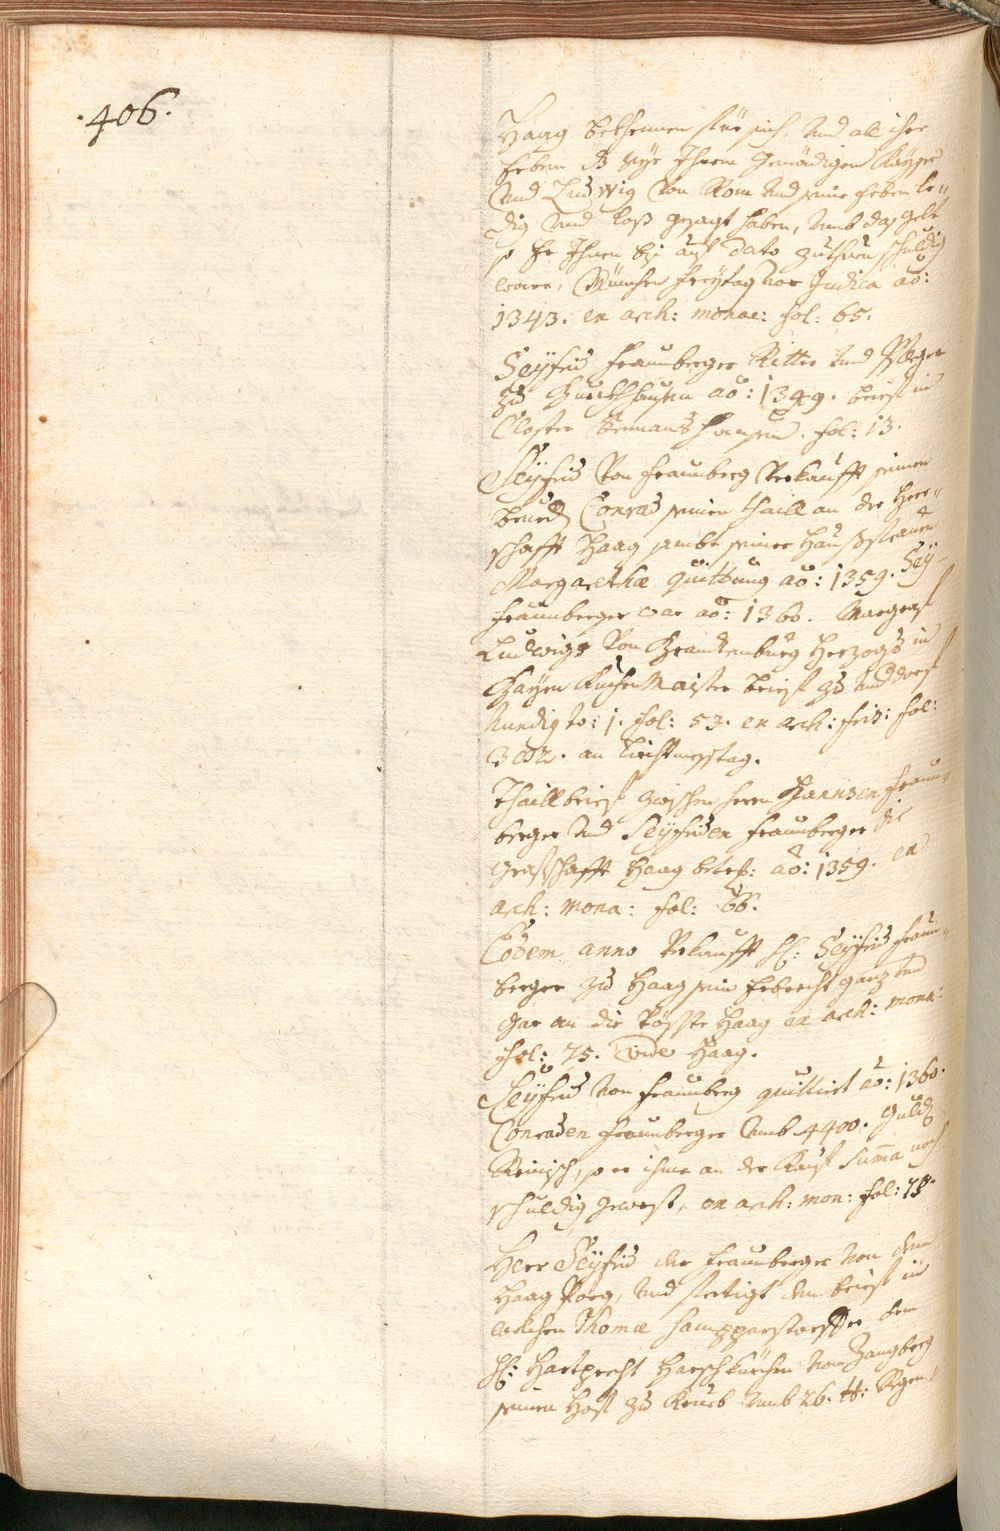 .406.
Haag bekhennen für sich, und all ihre
Erben dz wyr Ihrem Genödigen Kayser
Und Ludwig Von Rom und seine Erben le-
dig und loß gesagt haben, umb das gelt
so Er Ihnen biß auf dato zuthuen schuldig
ware, München freytag vor Judica aõ:
1343. ex arch: monac: fol: 65.
Seyfrid fraunberger Ritter und Pfleger
zu Burckhausen aõ: 1349. brieff in
Closter fol: 13.
Seyfrid Von fraunberg Verkaufft seinem
brued Conrad seinen thaill an der Herr-
schafft Haag sambt seiner Haußfrauen
Margarethæ quittung aõ: 1359. Sey-
fraunberger war aõ: 1360. Margraf
Ludwigs Von Brandenburg Herzogs in
Bayrn KuchenMaister brieff zu
Hundig to: 1. fol: 53. ex arch: fris: fol:
302. an Liechtmesstag.
Thaillbrief zwischen herrn Hannsen fraun-
berger und Seyfriden fraunberger die
Graffschafft Haag betrf: aõ: 1359. ex
arch: mona: fol: 66.
Eodem anno Verkaufft H: Seyfrid fraun-
berger zu Haag sein Erbrecht ganz und
gar an die Vösste Haag ex arch: mona:
fol: 75. vide Haag.
Seyfrid von fraunberg quittiert aõ: 1360.
Conraden fraunberger umb 4400. guld
Reinisch, so er ihme an der Kauf Summa noch
schuldig gewest, ex arch: mon: fol: 75.
Herr Seyfrid der fraunberger von dem
Haag Pürg, und fertigt den brieff in
welchen Thomæ dem
H: Hartprecht Harschkürchen von Zangberg
seinen Hof zu umb 26. tt: Regen-